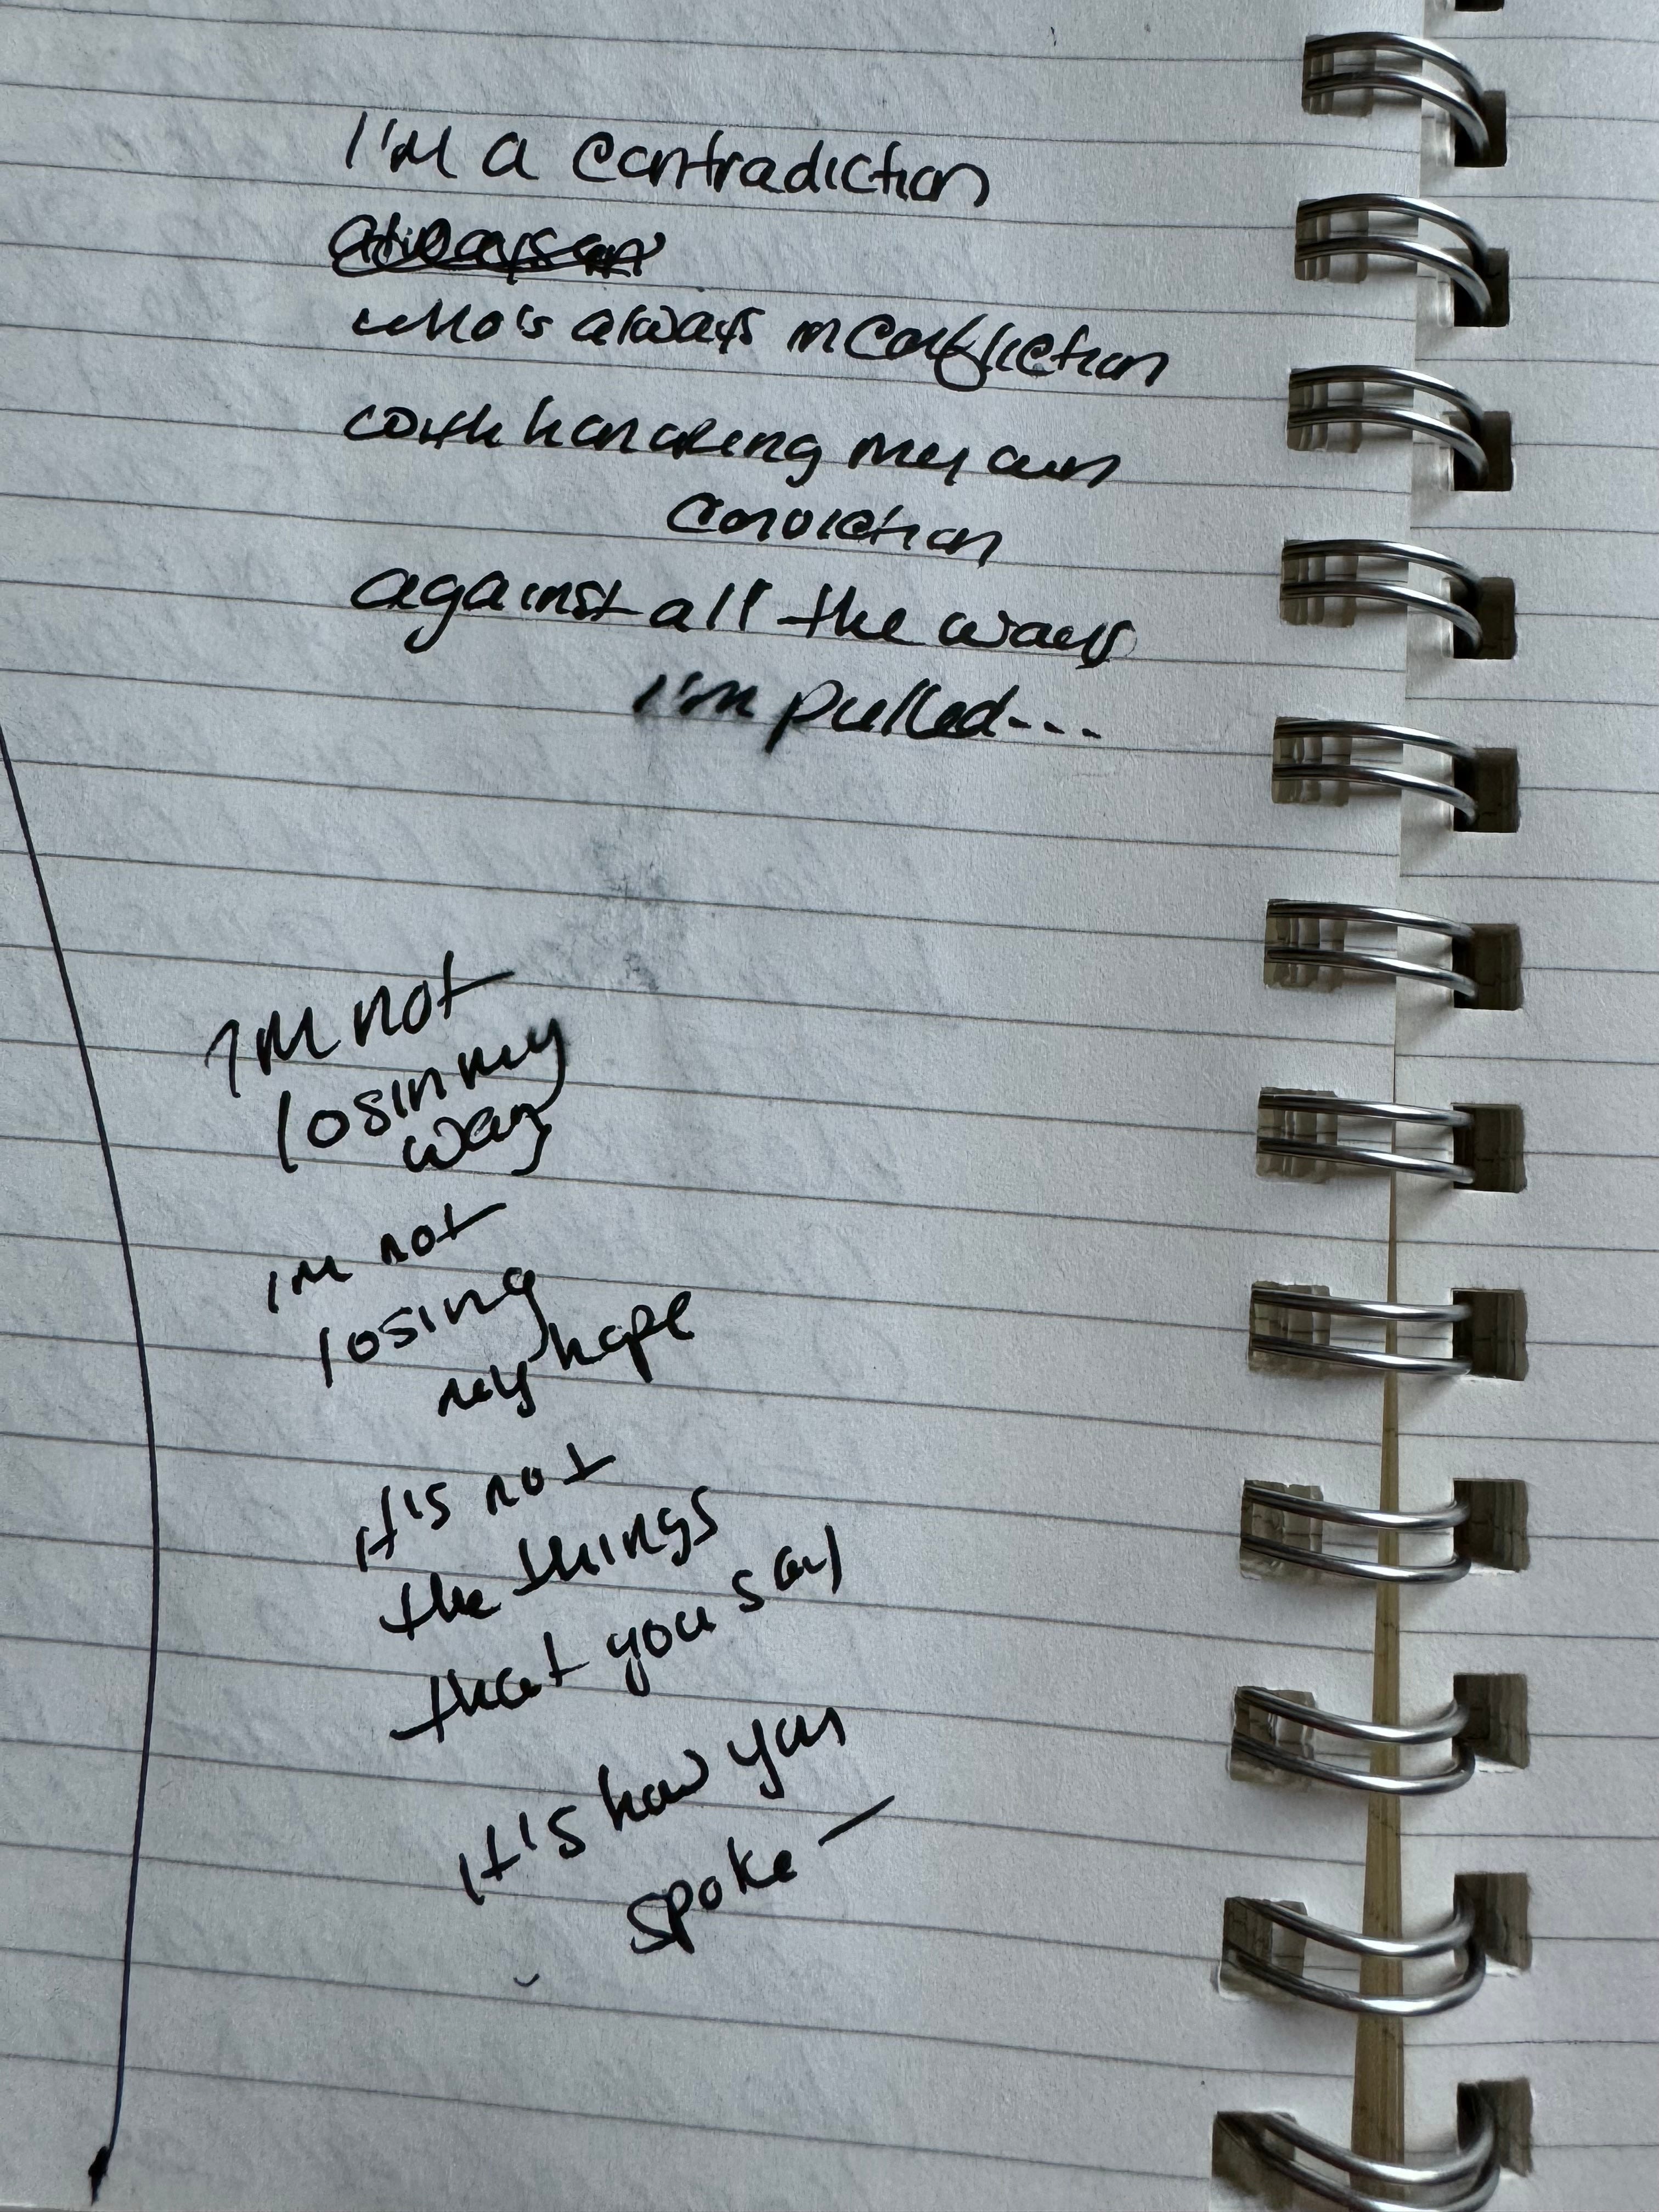 I'm a contradiction
who's always in confliction
with handling my own
conviction
against all the ways
I'm pulled...
I'm not
losin my
way
im not
losing
my hope
it's not
the things
that you say
it's how you
spoke —